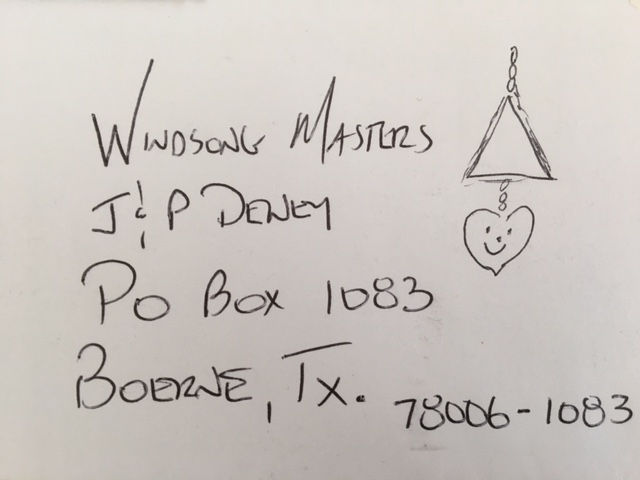 Windsong Masters
J & P Dewey
PO Box 1083
Boerne, Tx. 78006-1083